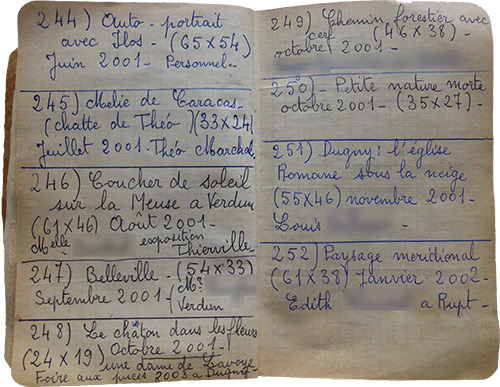 244) Auto-portrait
avec Ilos - (65x54)
Juin 2001 - Personnel -
245) Melie de Caracas -
(chatte de Théo) (33x24)
Juillet 2001 - Théo Marchal
246) Coucher de soleil
sur la Meuse a Verdun
(61x46) Août 2001 -
Melle exposition
Thierville
247) Belleville - (54x33)
Septembre 2001 - Mr
Verdun
248) Le châton dans les fleurs
(24x19) Octobre 2001 -
une dame de Savoye
Foire aux puces 2003 a Dugny
249) Chemin forestier avec
cerf (46x38) -
octobre 2001 -
250) - Petite nature morte
octobre 2001 - (35x27) -
251) Dugny : l'église
Romane sous la neige
(55x46) novembre 2001 -
Louis
252) Paysage meridional
(61x38) Janvier 2002 -
Edith a Rupt -